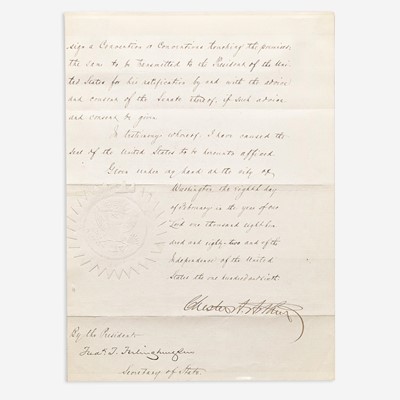 sign a Convention or Conventions touching the premises,
the same to be transmitted to the President of the Uni-
ted States for his ratification by and with the advice
and consent of the Senate thereof, if such advice
and consent be given.
In testimony whereof, I have caused the
Seal of the United States to be hereunto affixed.
Given under my hand at the city of
Washington the eighth day
of February in the year of our
Lord one thousand eight hun-
dred and eighty-two and of the
Independence of the United
States the one hundred and sixth.
Chester A. Arthur
By the President:
Fredk. T. Frelinghuysen
Secretary of State.